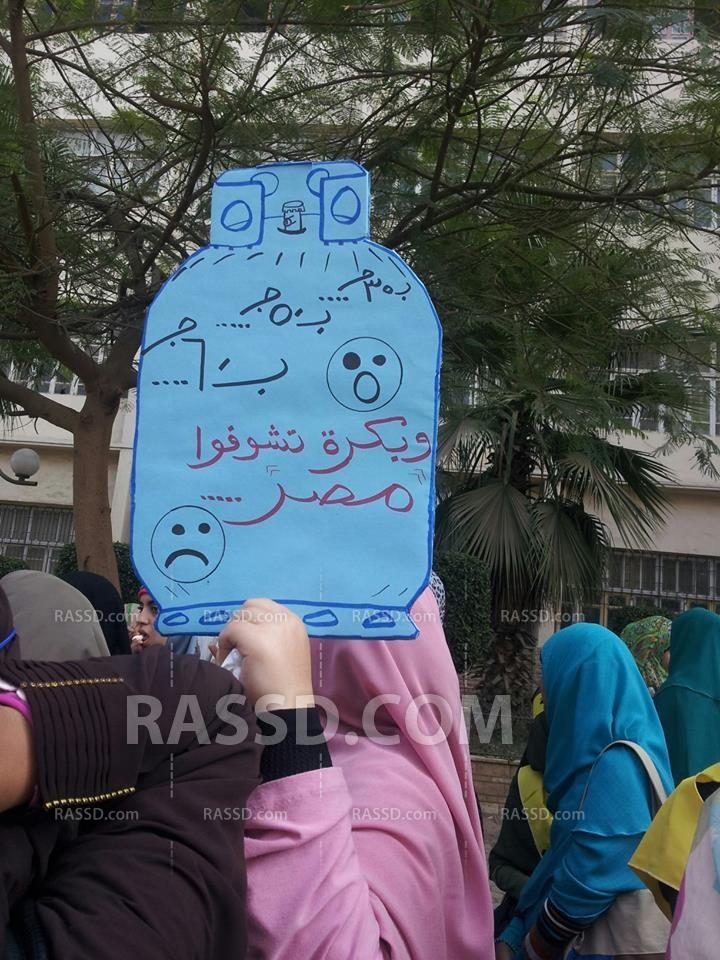 بـ ٣٥ جـ ....
بـ ٥٠ جـ ....
بـ ٦٠ جـ ....
وبكرة تشوفوا
"مصر" .....
RASSD.com RASSD.com RASSD.com RASSD.com RASSD.com
RASSD.COM
RASSD.com RASSD.com RASSD.com RASSD.com